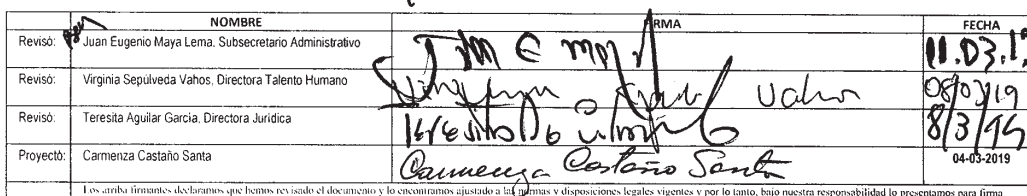 NOMBRE FIRMA FECHA
Revisó: Juan Eugenio Maya Lema. Subsecretario Administrativo 11.03.19
Revisó: Virginia Sepúlveda Vahos, Directora Talento Humano 08/03/19
Revisó: Teresita Aguilar García, Directora Jurídica 8/3/19
Proyectó: Carmenza Castaño Santa Carmenza Castaño Santa 04-03-2019
Los arriba firmantes declaramos que hemos revisado el documento y lo encontramos ajustado a las normas y disposiciones legales vigentes y por lo tanto, bajo nuestra responsabilidad lo presentamos para firma